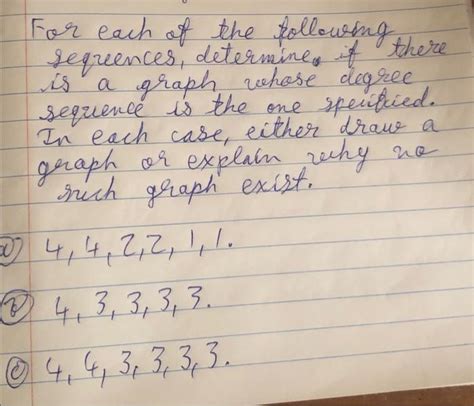 For each of the following
sequences, determine, if there
is a graph whose degree
sequence is the one specified.
In each case, either draw a
graph or explain why no
such graph exist.
a) 4, 4, 2, 2, 1, 1.
b) 4, 3, 3, 3, 3.
c) 4, 4, 3, 3, 3, 3.